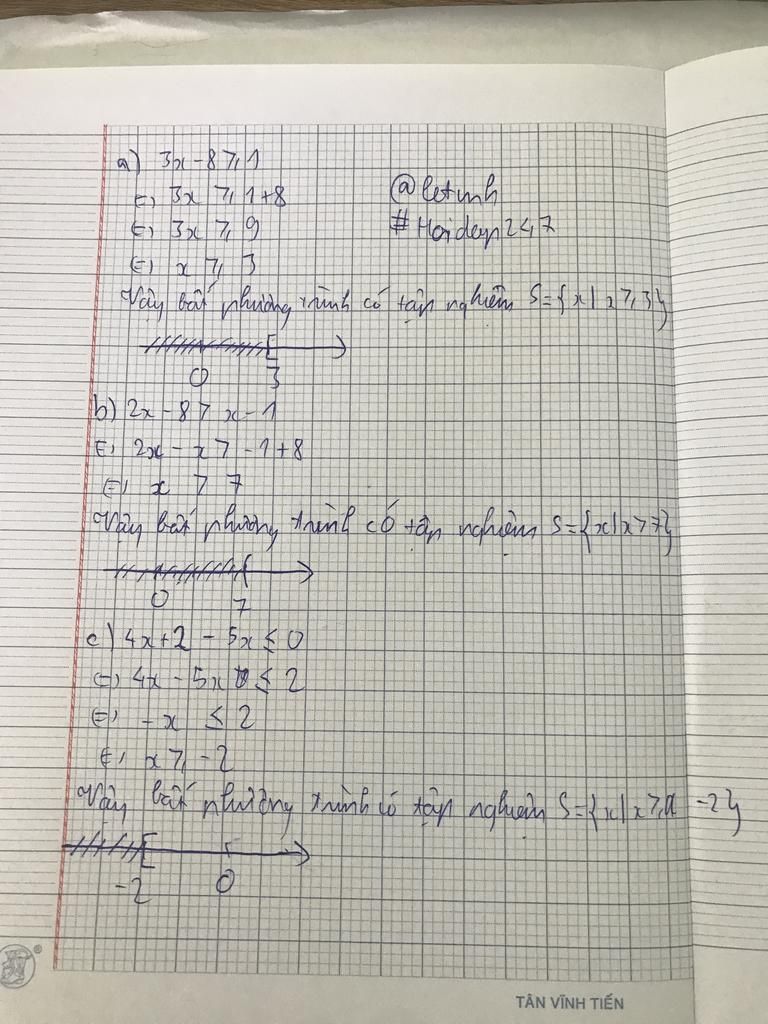 a) 3x - 8 ≥ 1
⇔ 3x ≥ 1+8
⇔ 3x ≥ 9
⇔ x ≥ 3
@letinh
#Hoidap247
Vậy bất phương trình có tập nghiệm S={x|x≥3}
0 3
b) 2x - 8 > x - 1
⇔ 2x - x > -1+8
⇔ x > 7
Vậy bất phương trình có tập nghiệm S={x|x>7}
0 7
c) 4x+2 - 5x ≤ 0
⇔ 4x - 5x ≤ 2
⇔ -x ≤ 2
⇔ x ≥ -2
Vậy bất phương trình có tập nghiệm S={x|x≥ -2}
-2 0
TÂN VĨNH TIẾN